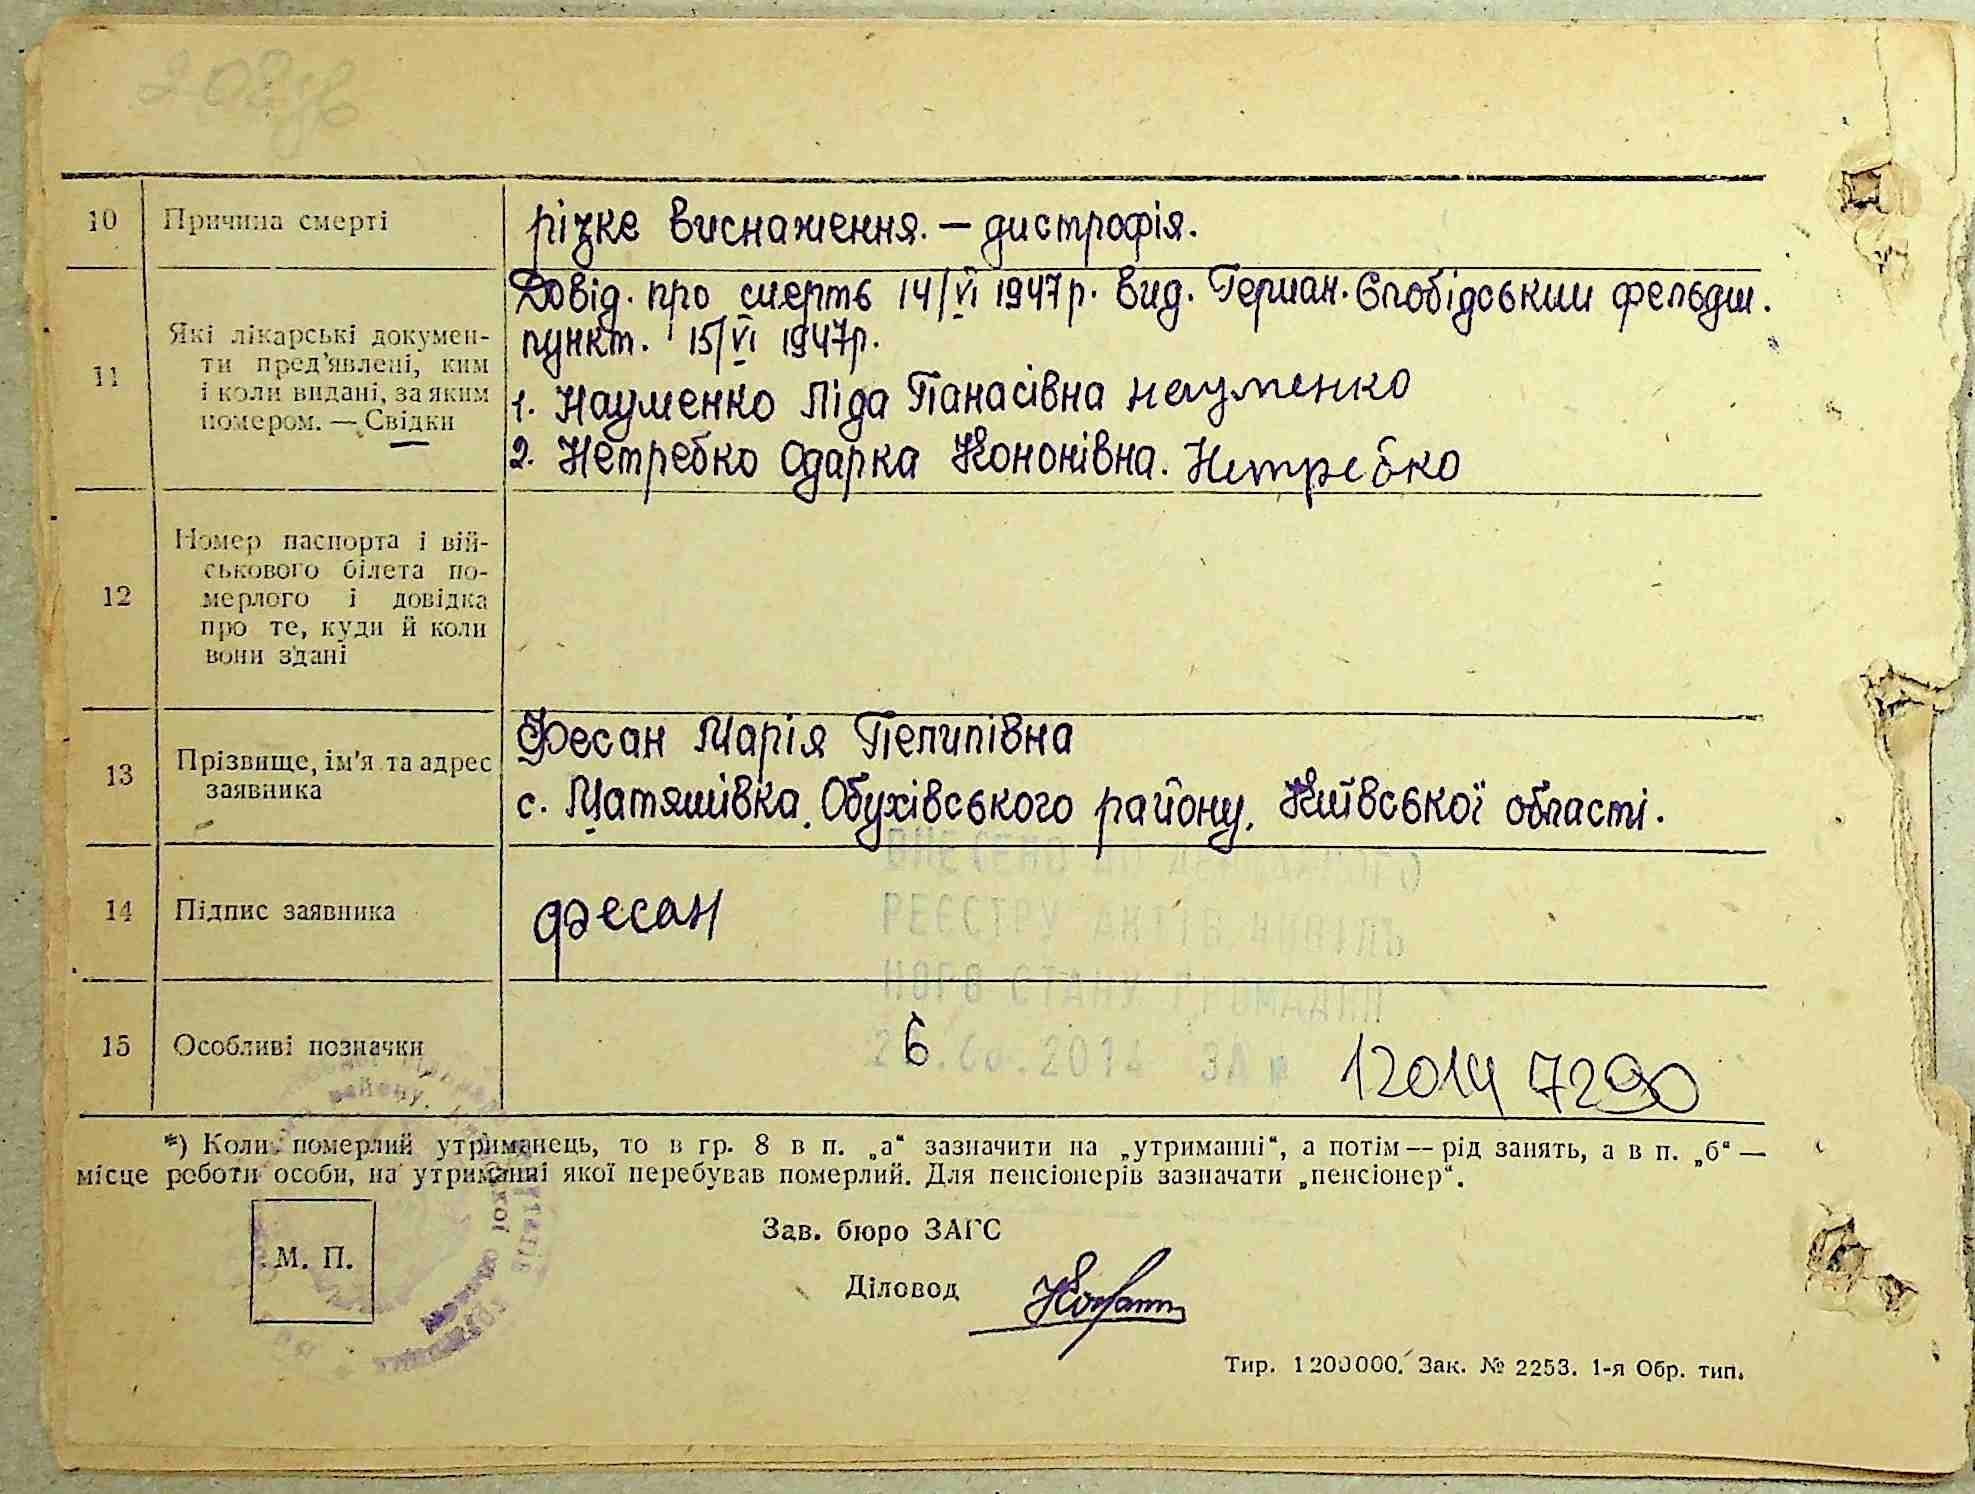 10 Причина смерті
різке виснаження. — дистрофія.
11 Які лікарські докумен-
ти пред'явлені, ким
і коли видані, за яким
номером. — Свідки
Довід. про смерть 14/VI 1947р. вид. Герман. Слобідський фельдш.
пункт. 15/VI 1947р.
1. Науменко Ліда Панасівна Науменко
2. Нетребко Одарка Кононівна. Нетребко
12 Номер паспорта і вій-
ськового білета по-
мерлого і довідка
про те, куди й коли
вони здані
13 Прізвище, ім'я та адрес
заявника
Фесан Марія Пилипівна
с. Матяшівка, Обухівського району, Київської області.
14 Підпис заявника
фесан
ВНЕСЕНО ДО ДЕРЖАВНОГО
РЕЄСТРУ АКТІВ ЦИВІЛЬ
НОГО СТАНУ ГРОМАДЯН
2014 ЗА №
15 Особливі позначки
6
12014 7290
*) Коли померлий утриманець, то в гр. 8 в п. „а“ зазначити на „утриманні“, а потім — рід занять, а в п. „б“ —
місце роботи особи, на утриманні якої перебував померлий. Для пенсіонерів зазначати „пенсіонер“.
М. П.
Зав. бюро ЗАГС
Діловод
Тир. 1200000. Зак. № 2253. 1-я Обр. тип.